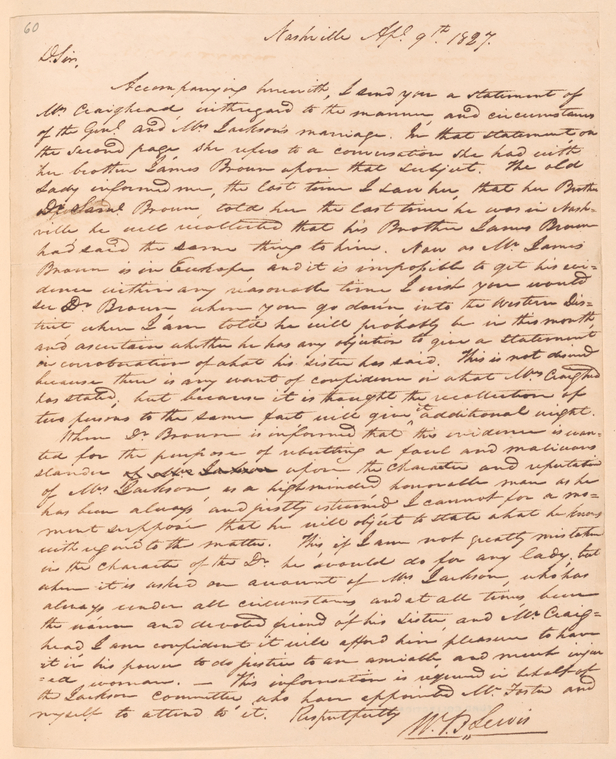 60
Nashville Apl. 9th. 1827.
D. Sir,
Accompanying herewith, I send you a statement of
Mrs. Craighead, withregard to the manner and circumstances
of the Genl. and Mrs Jackson's marriage. In that statement on
the second page she refers to a conversation she had with
her brother James Brown upon that subject. The old
Lady informed me, the last time I saw her, that her Brother
Dr. Saml. Brown, told her the last time he was in Nash-
ville he well recollected that his Brother James Brown
had said the same thing to him. Now as Mr. James
Brown is in Europe and it is impossible to get his evi-
dence within any reasonable time I wish you would
see Dr Brown when you go down into the Western Dis-
trict where I am told he will probably be in this month
and ascertain whether he has any objection to give a statement
in corroboration of what his sister has said. This is not desired
because there is any want of confidence in what Mrs. Craighead
has stated, but because it is thought the recollection of
two persons to the same fact will give it additional weight.
When Dr. Brown is informed that this evidence is wan-
ted for the purpose of rebutting a foul and malicious
slander of Mrs. Jackson upon the character and reputation
of Mrs Jackson, as a highminded honorable man as he
has been always, and justly esteemed I cannot for a mo-
ment suppose that he will object to state what he knows
with regard to the matter. This, if I am not greatly mistaken
in the character of the Dr. he would do for any lady, but
when it is asked on account of Mrs Jackson, who has
always under all circumstances, and at all times, been
the warm and devoted friend of his Sister, and Mr. Craig=
head, I am confident it will afford him pleasure to have
it in his power to do justice to an amiable, and much injur
=ed, woman. — This information is required in behalf of
the Jackson Committee, who have appointed Mr. Foster and
myself to attend to it. Respectfully
W. B. Lewis